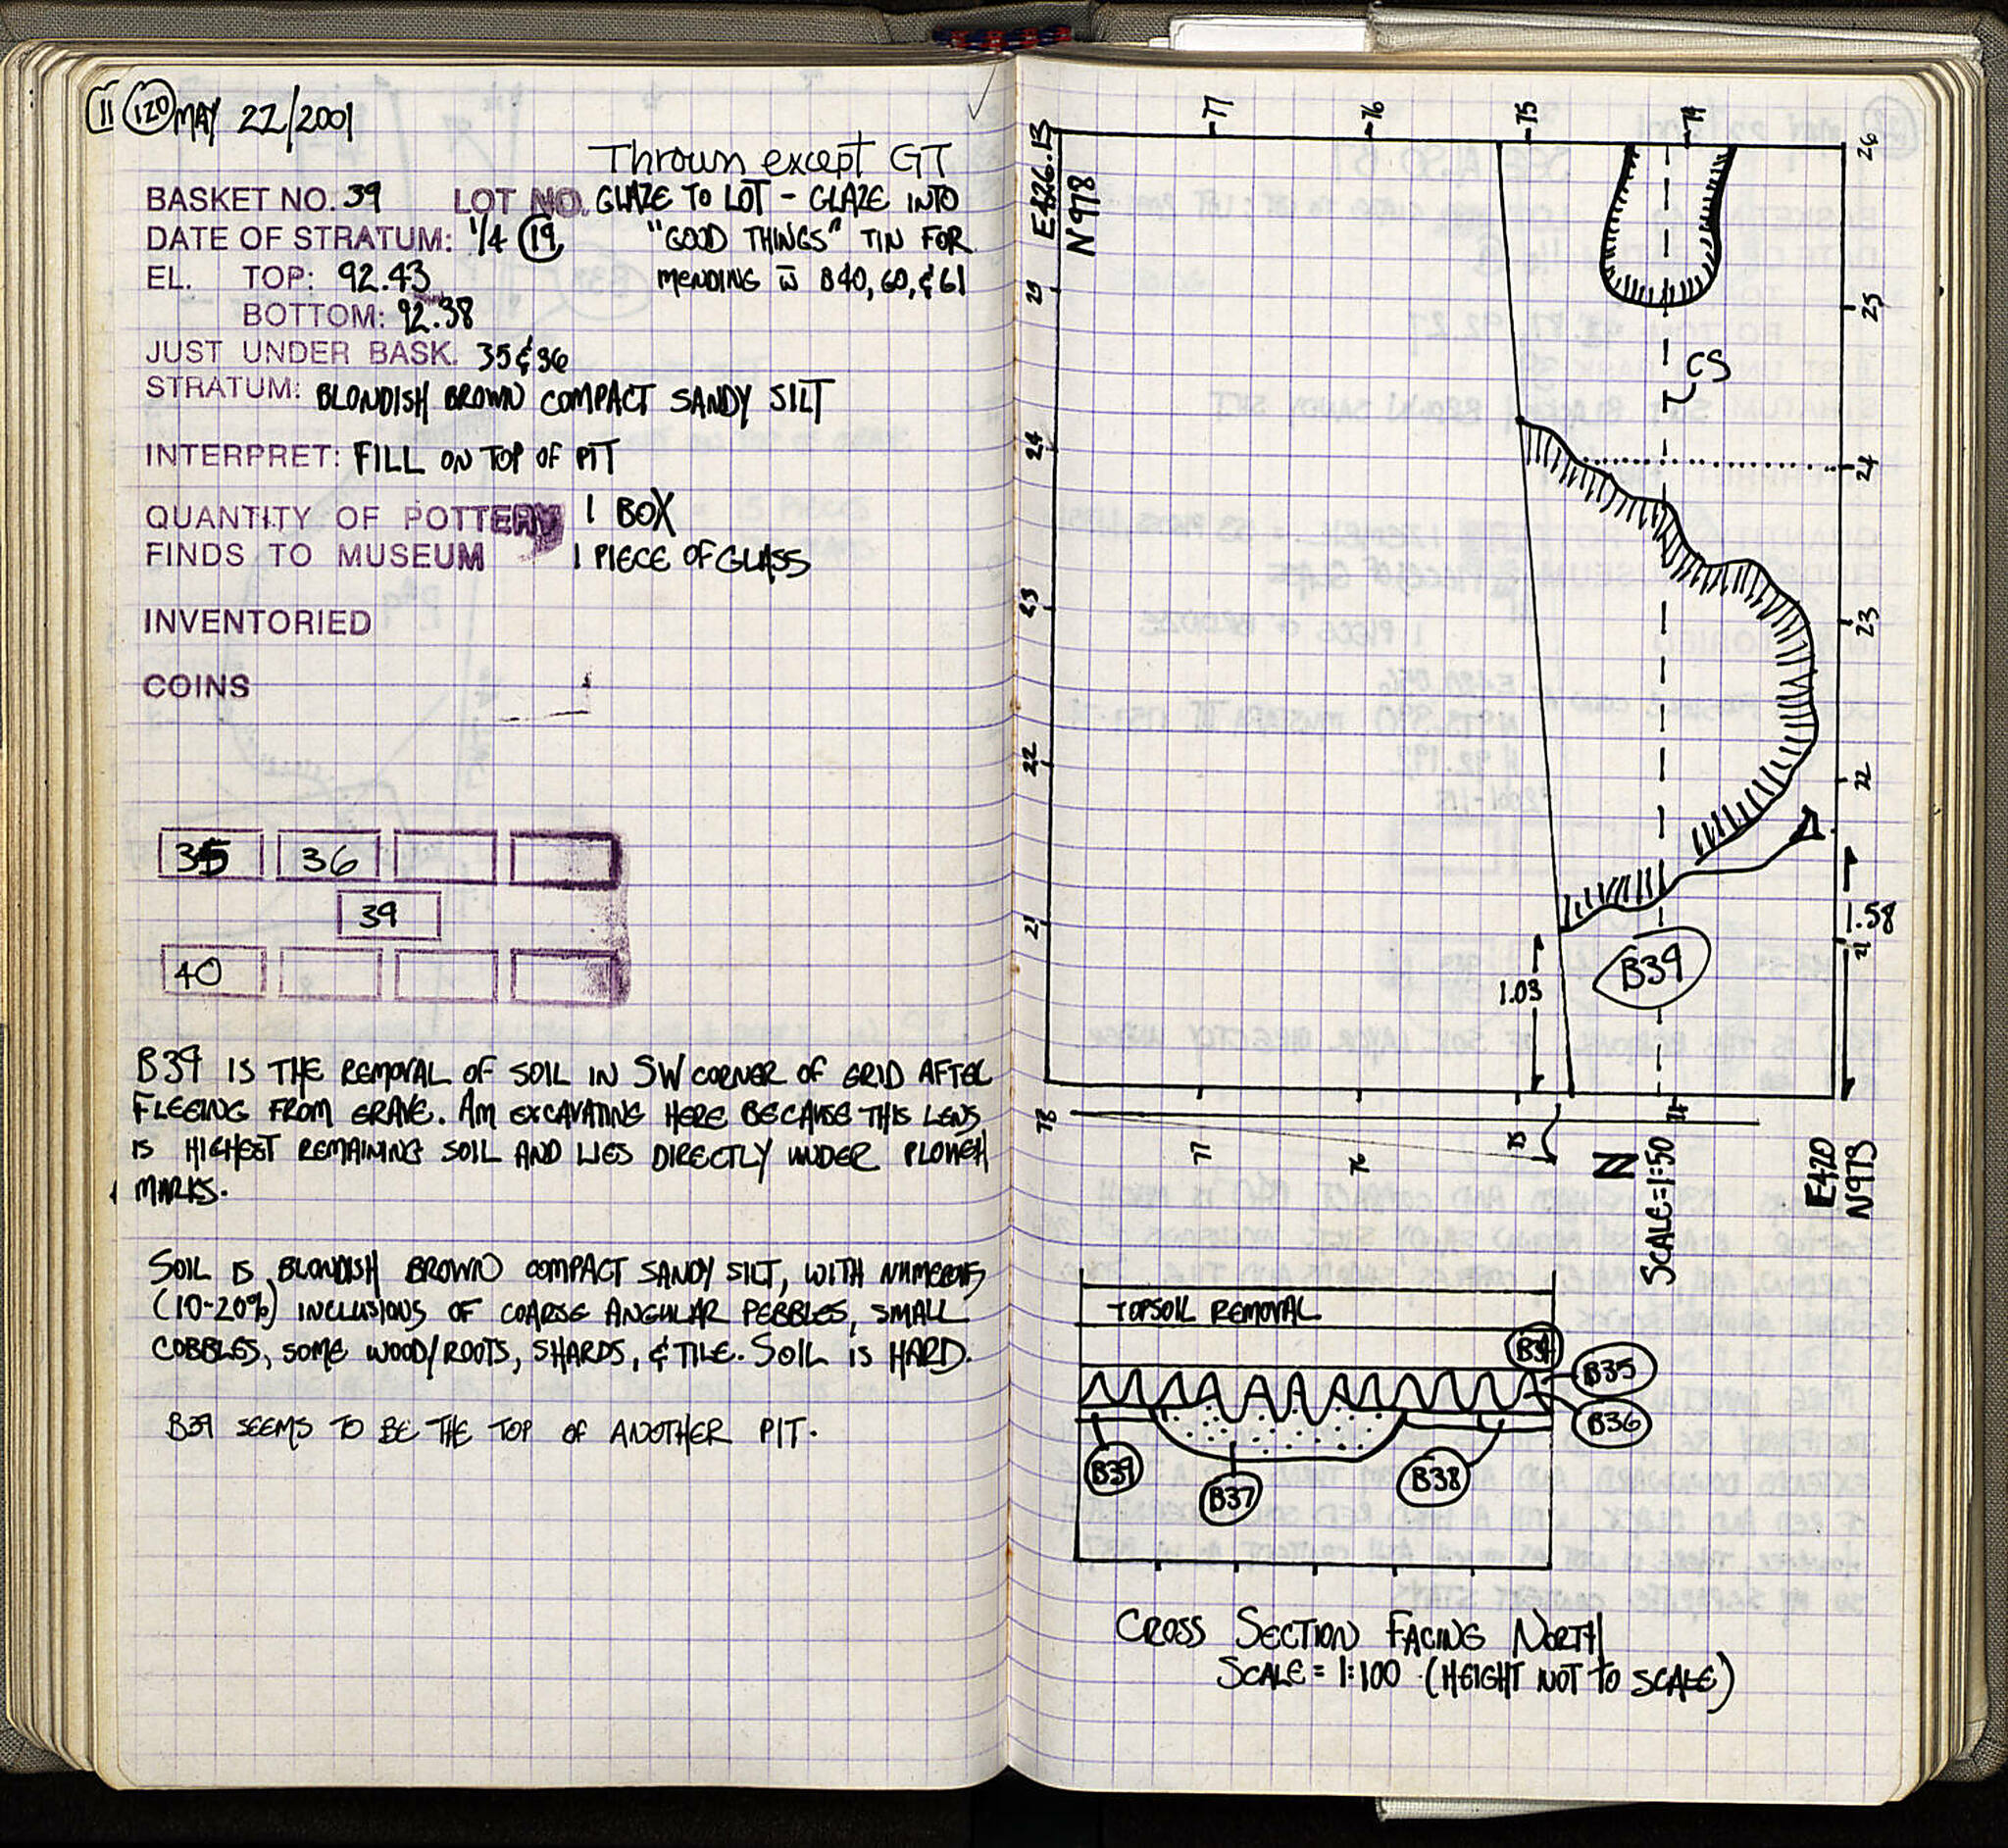 11 120 MAY 22/2001
Thrown except GT
BASKET NO. 39 LOT NO. GLAZE TO LOT - GLAZE INTO
DATE OF STRATUM: 1/4 19 "GOOD THINGS" TIN FOR
EL. TOP: 92.43 MENDING w̄ B40, 60, & 61
BOTTOM: 92.38
JUST UNDER BASK. 35 & 36
STRATUM: BLONDISH BROWN COMPACT SANDY SILT
INTERPRET: FILL ON TOP OF PIT
QUANTITY OF POTTERY 1 BOX
FINDS TO MUSEUM 1 PIECE OF GLASS
INVENTORIED
COINS
35 36
39
40
B39 IS THE REMOVAL OF SOIL IN SW CORNER OF GRID AFTER
FLEEING FROM GRAVE. AM EXCAVATING HERE BECAUSE THIS LENS
IS HIGHEST REMAINING SOIL AND LIES DIRECTLY UNDER PLOWGH
MARKS.
SOIL IS BLONDISH BROWN COMPACT SANDY SILT, WITH NUMEROUS
(10-20%) INCLUSIONS OF COARSE ANGULAR PEBBLES, SMALL
COBBLES, SOME WOOD/ROOTS, SHARDS, & TILE. SOIL IS HARD.
B39 SEEMS TO BE THE TOP OF ANOTHER PIT.
77 76 75 74
E426.13
N978
26
25 25
CS
24 24
23 23
22 22
21 21
1.58
1.03
B39
78 77 76 75 74
N
SCALE=1:50
E420
N973
TOPSOIL REMOVAL
B34
B35
B36
B39 B37 B38
CROSS SECTION FACING NORTH
SCALE = 1:100 (HEIGHT NOT TO SCALE)